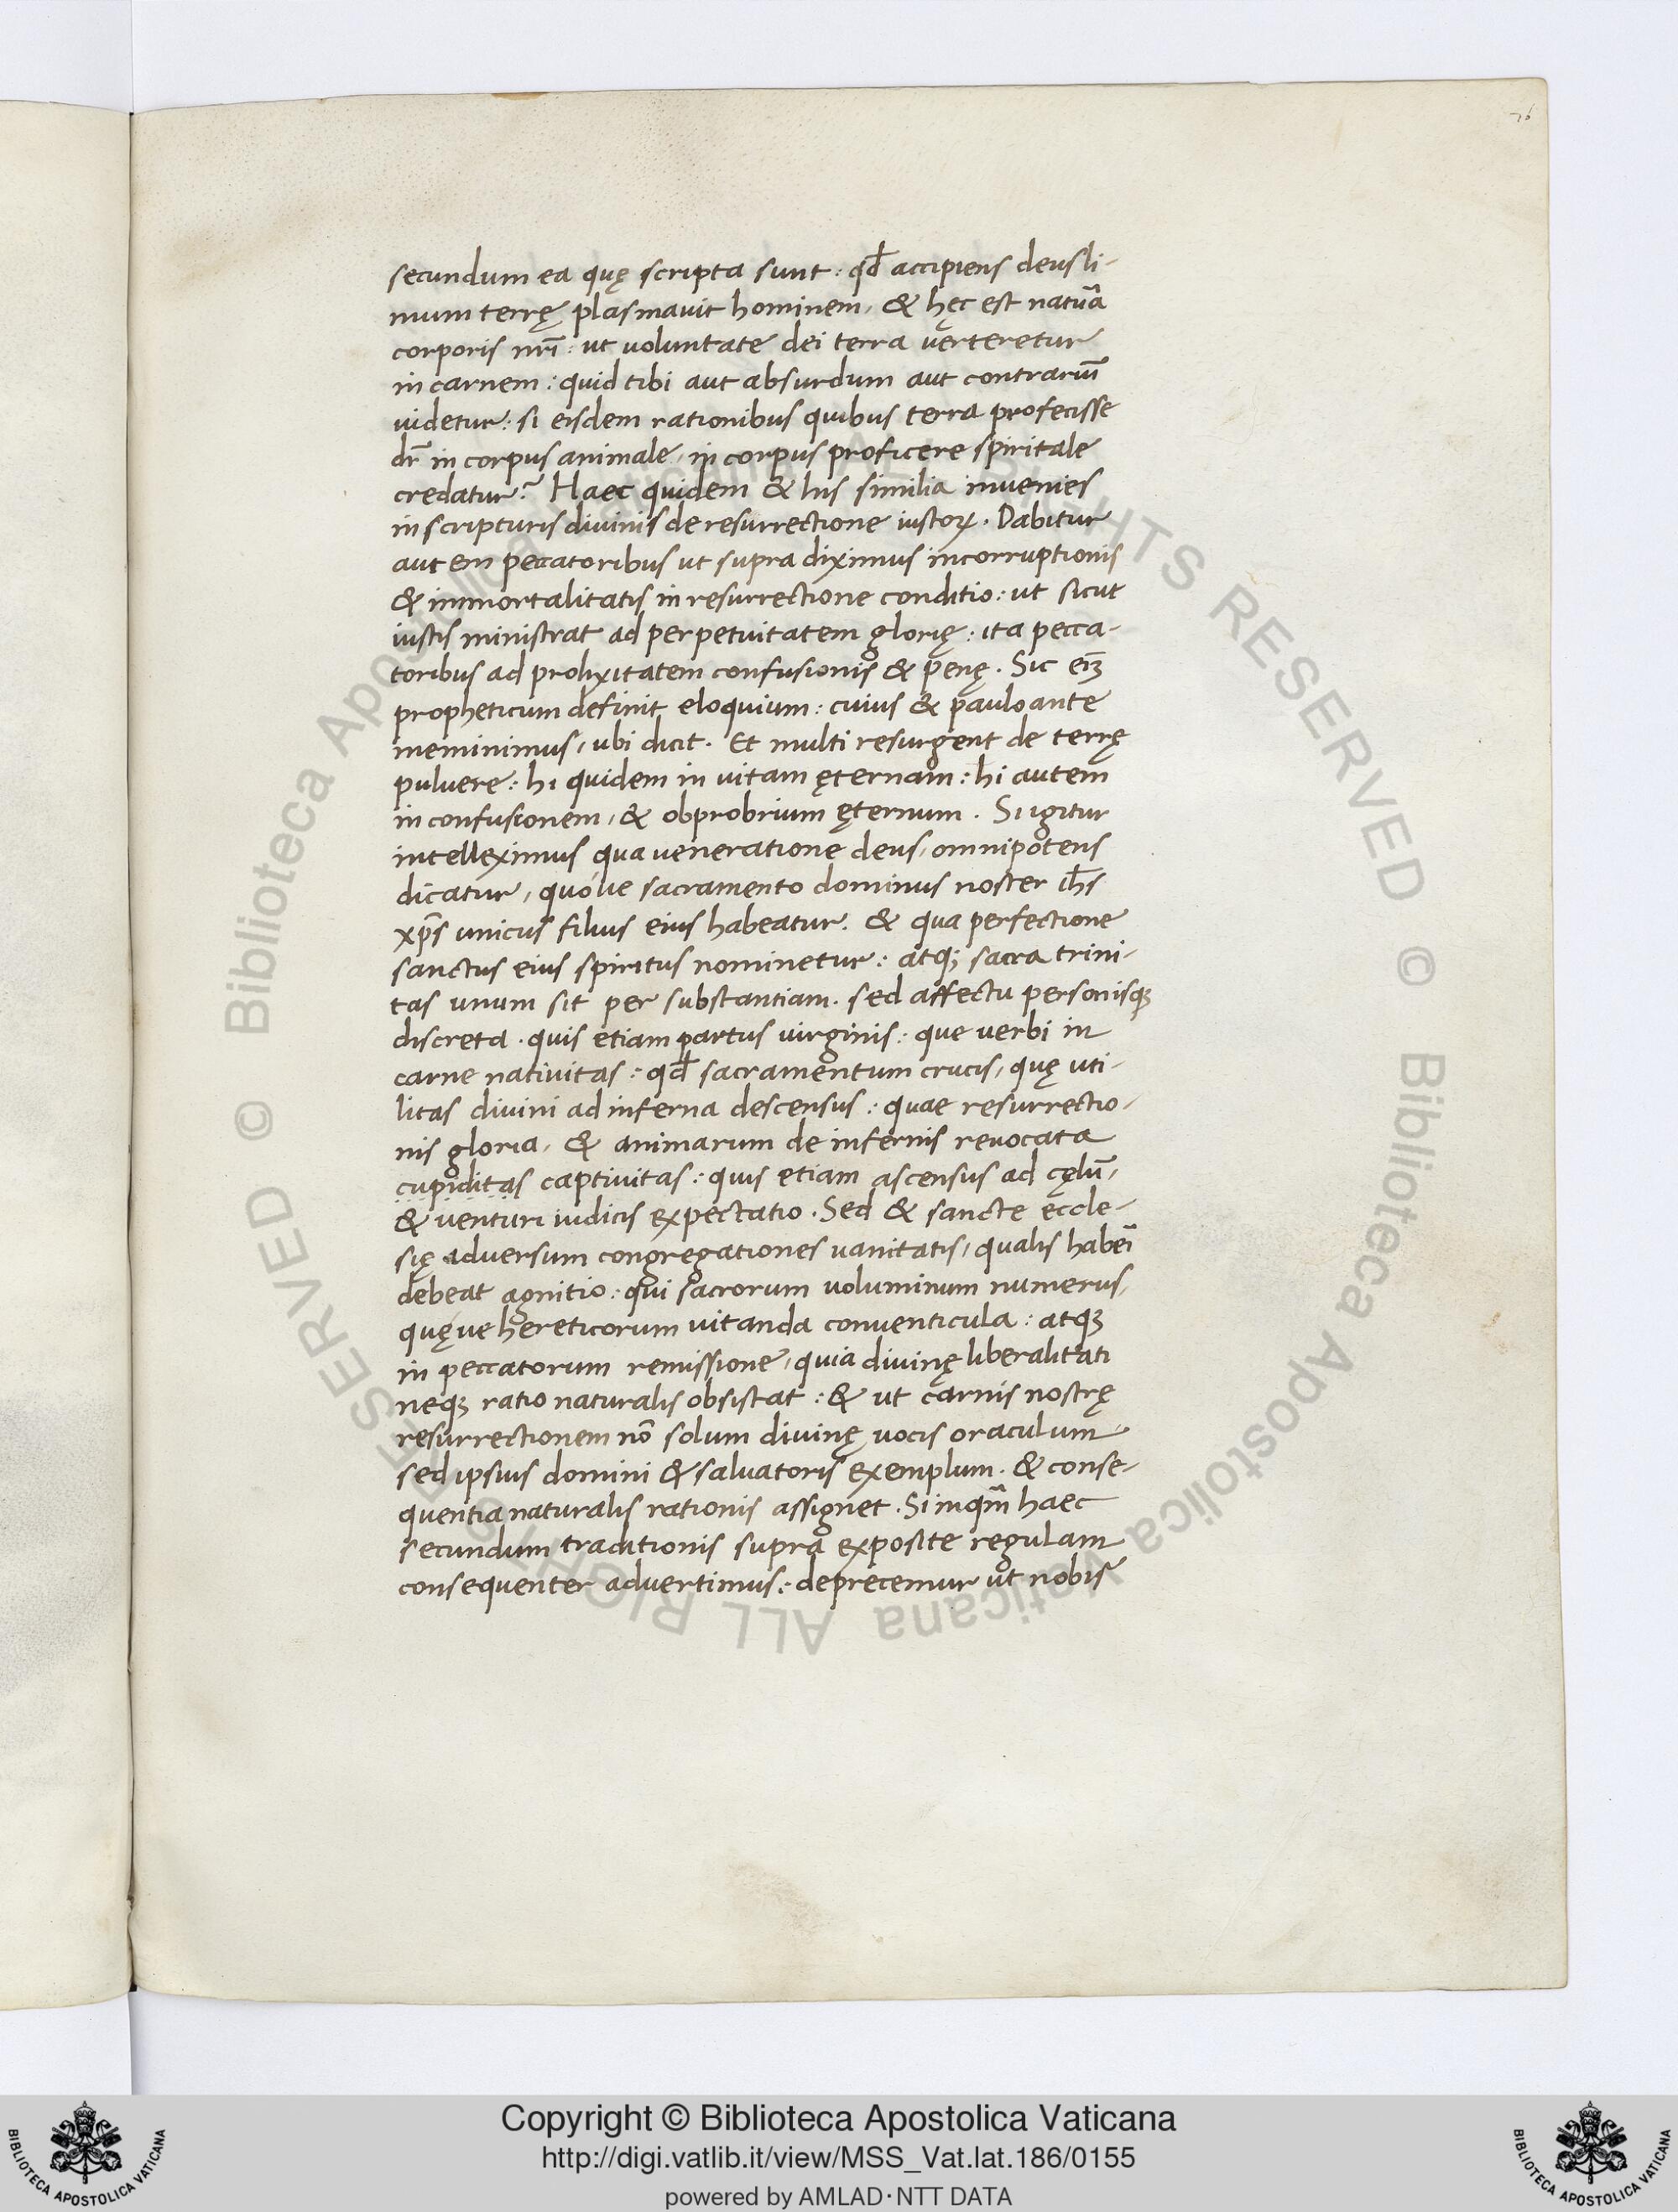 76
secundum ea quę scripta sunt : qđ accipiens deus li-
mum terrę plasmavit hominem, & hęc est natu͞a
corporis nr̄i : ut voluntate dei terra verteretur
in carnem : quid tibi aut absurdum aut contrariū
videtur : si eisdem rationibus quibus terra profecisse
dr̄ in corpus animale, in corpus proficere spiritale
credatur? Haec quidem & his similia invenies
in scripturis divinis de resurrectione iustoꝝ. Dabitur
autem peccatoribus ut supra diximus incorruptionis
& immortalitatis in resurrectione conditio : ut sicut
iustis ministrat ad perpetuitatem glorię : ita pecca-
toribus ad prolixitatem confusionis & penę. Sic eiꝫ
propheticum definit eloquium : cuius & paulo ante
meminimus, ubi dicit. Et multi resurgent de terrę
pulvere : hi quidem in vitam ęternam : hi autem
in confusionem, & obprobrium ęternum. Si igitur
intelleximus qua veneratione deus, omnipotens
dicatur, quóve sacramento dominus noster ih̄s
xp̄s unicus filius eius habeatur. & qua perfectione
sanctus eius spiritus nominetur : atq; sacra trini-
tas unum sit per substantiam. sed affectu personisqꝫ
discreta. quis etiam partus virginis : que verbi in
carne nativitas : qđ sacramentum crucis, quę uti-
litas divini ad inferna descensus : quae resurrectio-
nis gloria, & animarum de infernis revocata
cupiditas captivitas : quis etiam ascensus ad cęlū,
& venturi iudicis expectatio. Sed & sancte eccle-
się adversum congregationes vanitatis, qualis haberī
debeat agnitio : qui sacrorum voluminum numerus,
quęve hereticorum vitanda conventicula : atqꝫ
in peccatorum remissione, quia divinę liberalitati
neqꝫ ratio naturalis obsistat : & ut carnis nostrę
resurrectionem nō solum divinę vocis oraculum
sed ipsius domini & salvatoris exemplum. & conse-
quentia naturalis rationis assignet. Si inqu͞a haec
secundum traditionis supra exposite regulam
consequenter advertimus : deprecemur ut nobis
© Biblioteca Apostolica Vaticana ALL RIGHTS RESERVED © Biblioteca Apostolica Vaticana ALL RIGHTS RESERVED
Copyright © Biblioteca Apostolica Vaticana
http://digi.vatlib.it/view/MSS_Vat.lat.186/0155
powered by AMLAD·NTT DATA
BIBLIOTECA APOSTOLICA VATICANA
BIBLIOTECA APOSTOLICA VATICANA